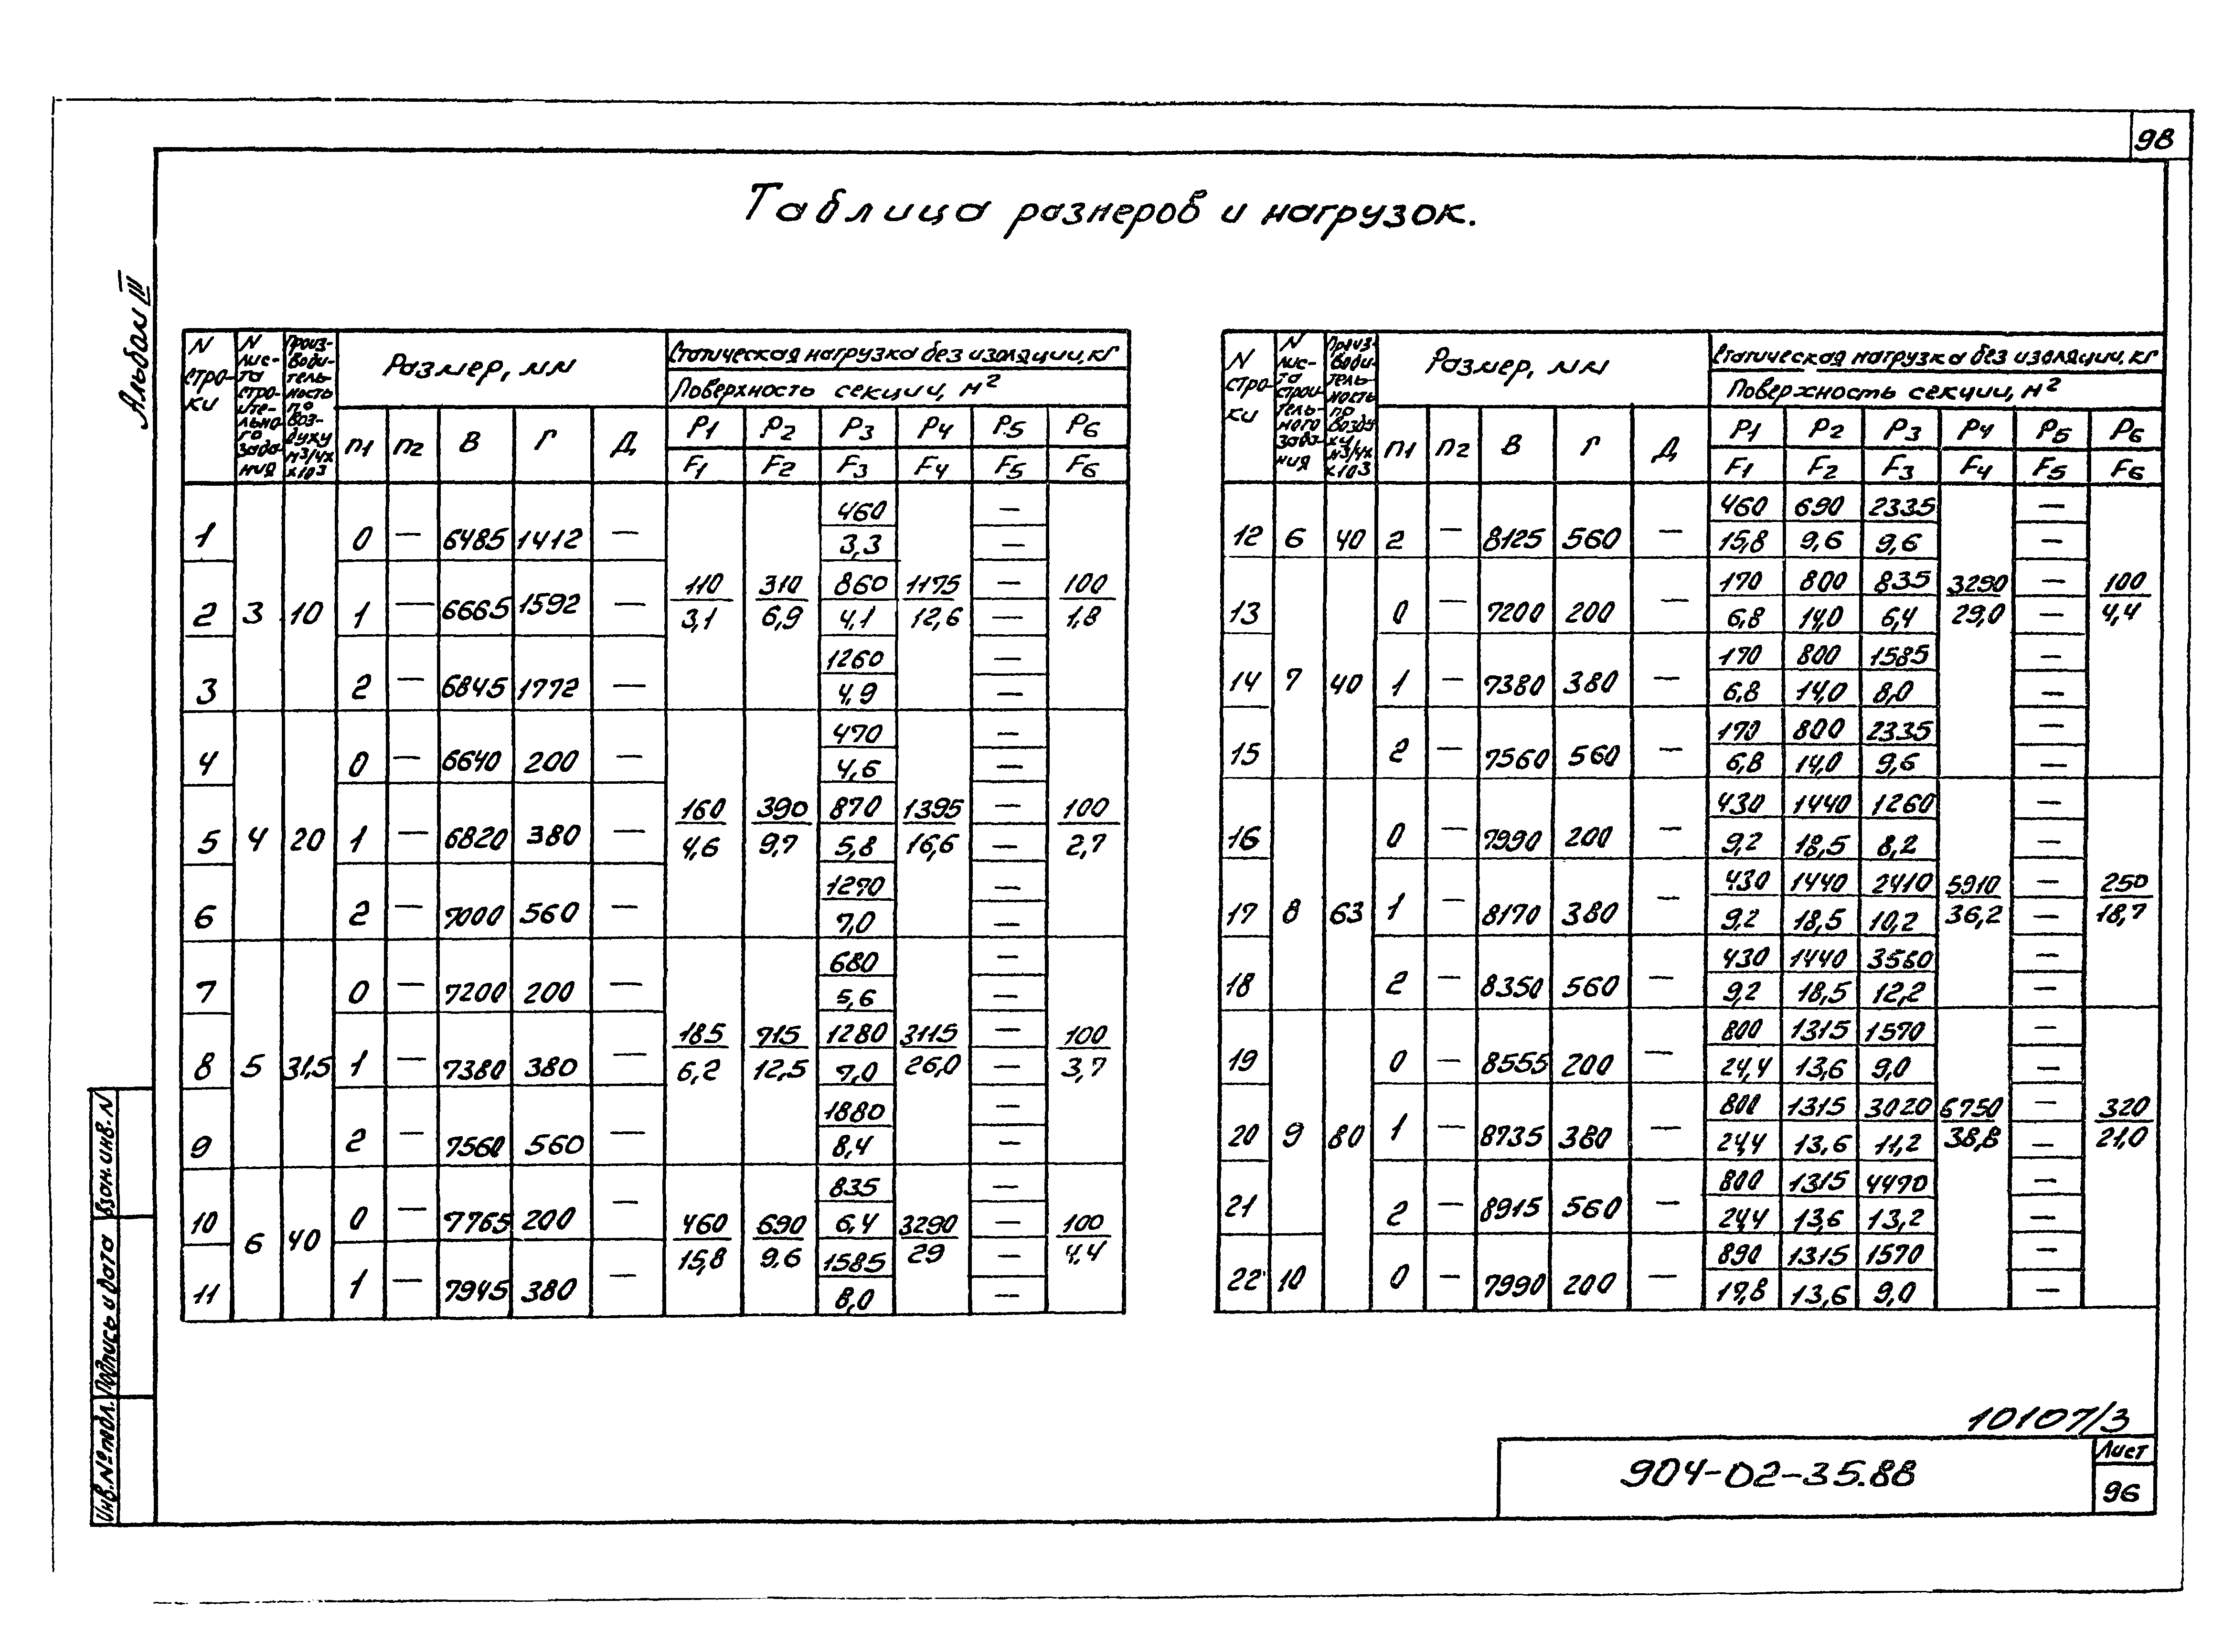 98
Таблица размеров и нагрузок.
Альбом III
N строки | N листа строительного задания | Производительность по воздуху м³/ч х х10³ | Размер, мм | Статическая нагрузка без изоляции, кг
Поверхность секции, м²
п1 | п2 | В | Г | Д | P1 | P2 | P3 | P4 | P5 | P6
F1 | F2 | F3 | F4 | F5 | F6
1 | 0 | — | 6485 | 1412 | — | 460 | —
3,3 | —
2 | 3 | 10 | 1 | — | 6665 | 1592 | — | 110 | 310 | 860 | 1175 | — | 100
3,1 | 6,9 | 4,1 | 12,6 | — | 1,8
3 | 2 | — | 6845 | 1772 | — | 1260 | —
4,9 | —
4 | 0 | — | 6640 | 200 | — | 470 | —
4,6 | —
5 | 4 | 20 | 1 | — | 6820 | 380 | — | 160 | 390 | 870 | 1395 | — | 100
4,6 | 9,7 | 5,8 | 16,6 | — | 2,7
6 | 2 | — | 7000 | 560 | — | 1270 | —
7,0 | —
7 | 0 | — | 7200 | 200 | — | 680 | —
5,6 | —
8 | 5 | 31,5 | 1 | — | 7380 | 380 | — | 185 | 715 | 1280 | 3115 | — | 100
6,2 | 12,5 | 7,0 | 26,0 | — | 3,7
9 | 2 | — | 7560 | 560 | — | 1880 | —
8,4 | —
10 | 6 | 40 | 0 | — | 7765 | 200 | — | 460 | 690 | 835 | 3290 | — | 100
15,8 | 9,6 | 6,4 | 29 | — | 4,4
11 | 1 | — | 7945 | 380 | — | 1585 | —
8,0 | —
N строки | N листа строительного задания | Производительность по воздуху м³/ч х х10³ | Размер, мм | Статическая нагрузка без изоляции, кг
Поверхность секции, м²
п1 | п2 | В | Г | Д | P1 | P2 | P3 | P4 | P5 | P6
F1 | F2 | F3 | F4 | F5 | F6
12 | 6 | 40 | 2 | — | 8125 | 560 | — | 460 | 690 | 2335 | —
15,8 | 9,6 | 9,6 | —
13 | 0 | — | 7200 | 200 | — | 170 | 800 | 835 | 3290 | — | 100
6,8 | 14,0 | 6,4 | 29,0 | — | 4,4
14 | 7 | 40 | 1 | — | 7380 | 380 | — | 170 | 800 | 1585 | —
6,8 | 14,0 | 8,0 | —
15 | 2 | — | 7560 | 560 | — | 170 | 800 | 2335 | —
6,8 | 14,0 | 9,6 | —
16 | 0 | — | 7990 | 200 | — | 430 | 1440 | 1260 | —
9,2 | 18,5 | 8,2 | —
17 | 8 | 63 | 1 | — | 8170 | 380 | — | 430 | 1440 | 2410 | 5910 | — | 250
9,2 | 18,5 | 10,2 | 36,2 | — | 18,7
18 | 2 | — | 8350 | 560 | — | 430 | 1440 | 3560 | —
9,2 | 18,5 | 12,2 | —
19 | 0 | — | 8555 | 200 | — | 800 | 1315 | 1570 | —
24,4 | 13,6 | 9,0 | —
20 | 9 | 80 | 1 | — | 8735 | 380 | — | 800 | 1315 | 3020 | 6750 | — | 320
24,4 | 13,6 | 11,2 | 38,8 | — | 21,0
21 | 2 | — | 8915 | 560 | — | 800 | 1315 | 4470 | —
24,4 | 13,6 | 13,2 | —
22 | 10 | 0 | — | 7990 | 200 | — | 890 | 1315 | 1570 | —
17,8 | 13,6 | 9,0 | —
Взам. инв. N
Подпись и дата
Инв. № подл.
10107/3
904-02-35.88
Лист
96